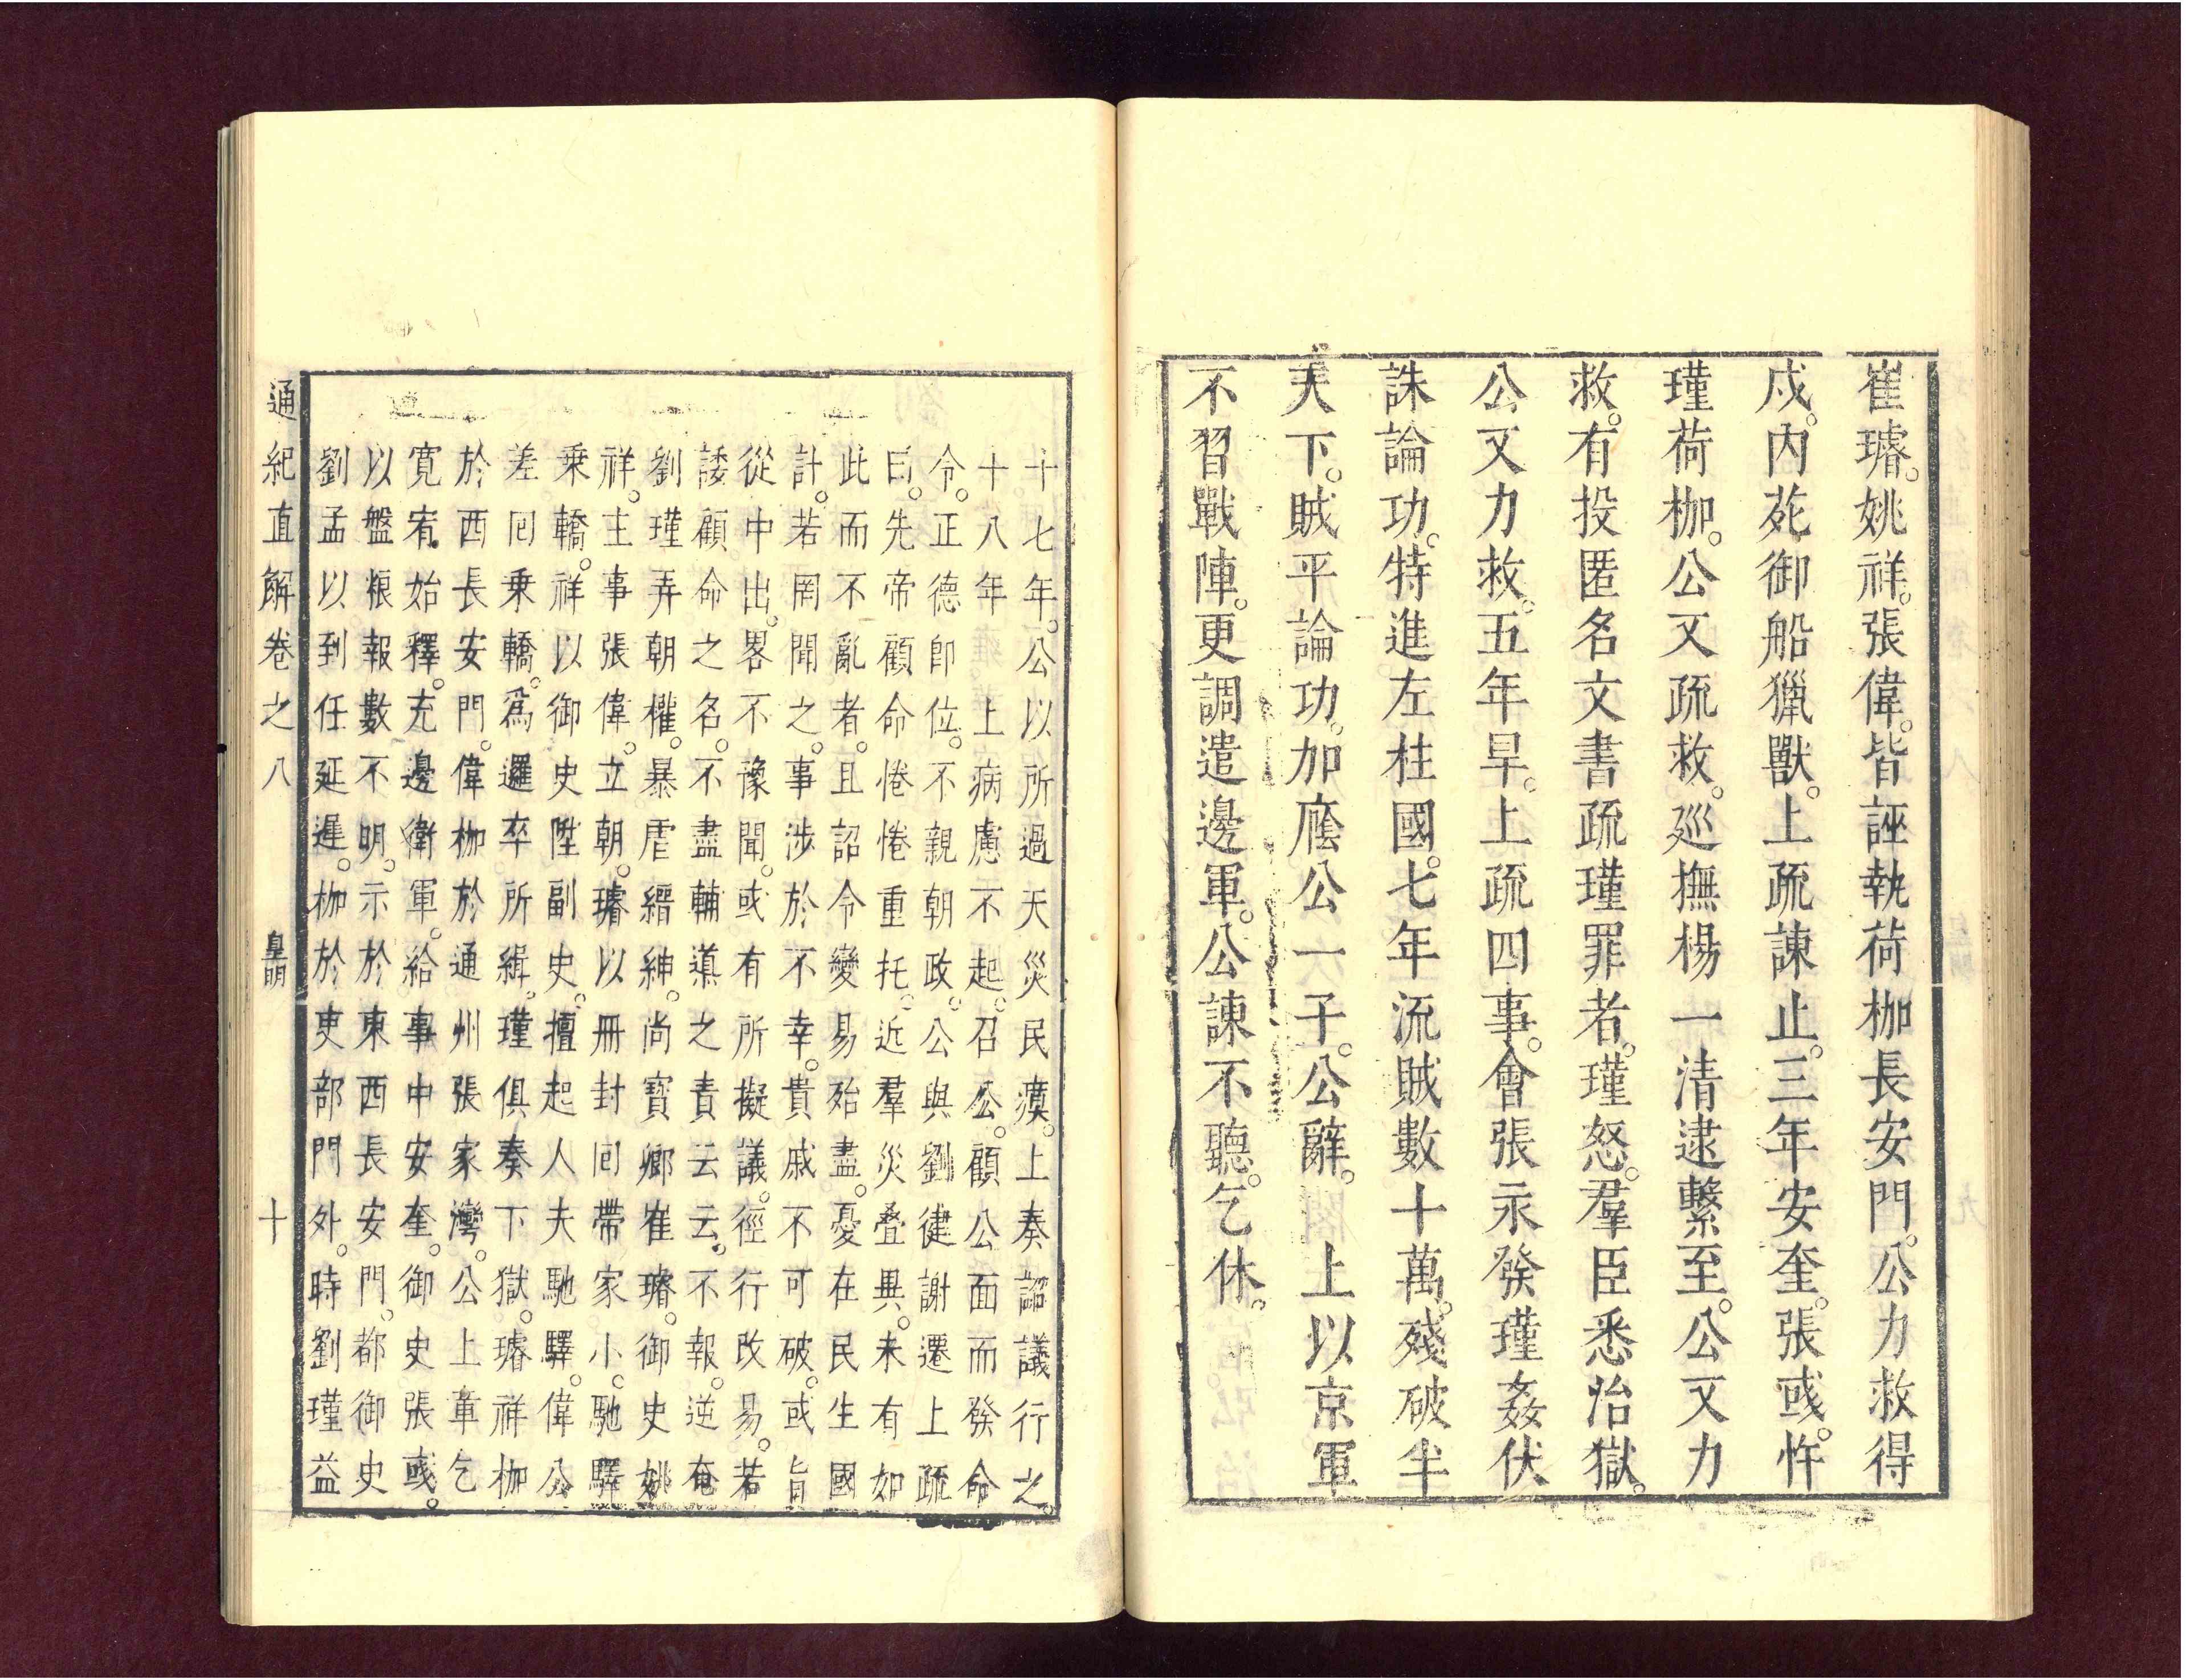 崔璿。姚祥。張偉。皆誣執荷枷長安門。公力救得
戍。內苑御船獵獸。上疏諫止。三年安奎。張彧。忤
瑾荷枷。公又疏救。廵撫楊一清逮繫至。公又力
救。有投匿名文書疏瑾罪者。瑾怒。羣臣悉治獄。
公又力救。五年旱。上疏四事。會張永發瑾姦伏
誅論功。特進左柱國。七年流賊數十萬。殘破半
天下。賊平論功。加廕公一子。公辭。上以京軍
不習戰陣。更調遣邊軍。公諫不聽。乞休。
十七年。公以所過天災民瘼。上奏詔議行之。
十八年上病慮不起。召公。顧公面而發命
令。正德卽位。不親朝政。公與劉健謝遷上疏
曰。先帝顧命惓惓重托。近羣災叠異。未有如
此而不亂者。且詔令變易殆盡。憂在民生國
計。若罔聞之。事涉於不幸。貴戚不可破。或旨
從中出。畧不豫聞。或有所擬議。徑行改易。若
諉顧命之名。不盡輔導之責云云。不報。逆奄
劉瑾弄朝權。暴虐縉紳。尚寳卿崔璿。御史姚
祥。主事張偉。立朝。璿以冊封囘帶家小。馳驛
乗轎。祥以御史陞副史。擅起人夫馳驛。偉公
差囘乗轎。爲邏卒所緝。瑾俱奏下獄。璿祥枷
於西長安門。偉枷於通州張家灣。公上章乞
寛宥。始釋。充邊衛軍。給事中安奎。御史張彧。
以盤粮報數不明。示於東西長安門。都御史
劉孟以到任延遲。枷於吏部門外。時劉瑾益
通紀直解卷之八　皇明　十